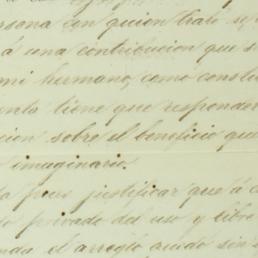 ersona con quien traté se
á una contribucion que s
mi hermano, como constit
ento tiene que responder
cion sobre el beneficio que
imaginario.
pues justificar que á c
do privado del uso y libre
nda el arreglo quedó sin